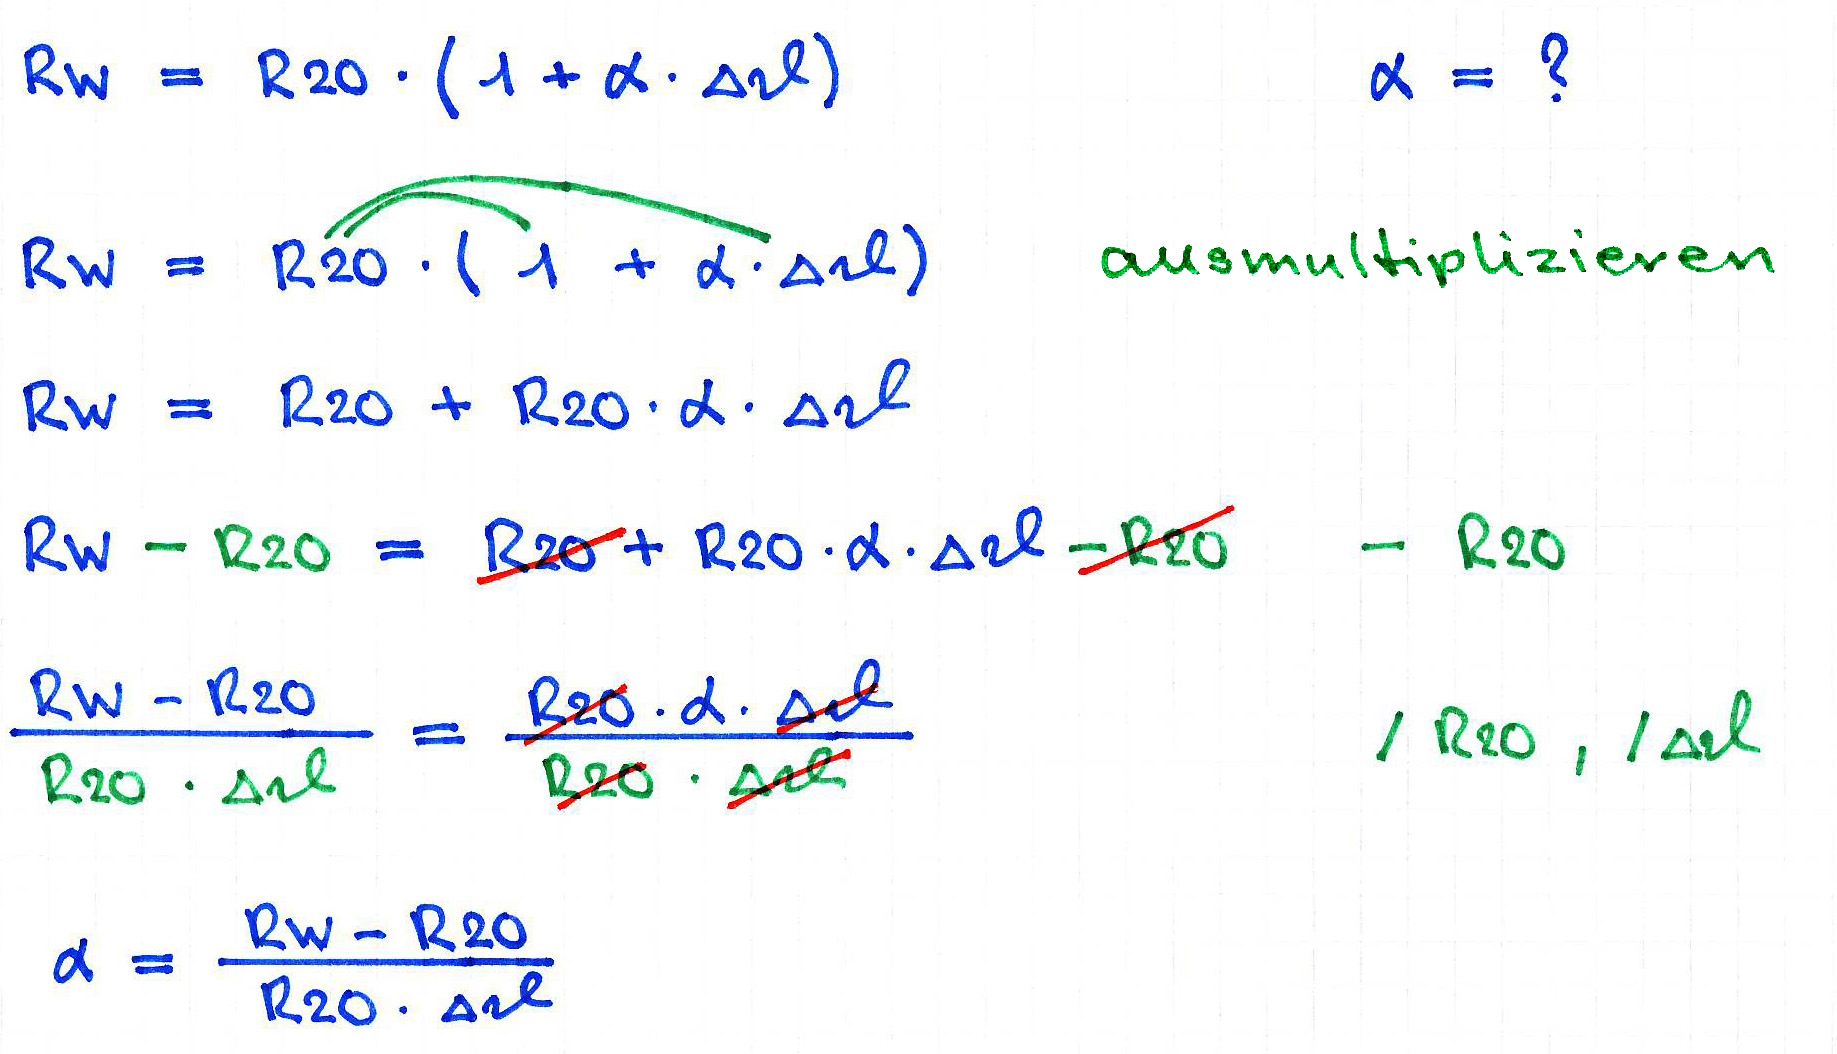 RW = R20 · (1 + α · Δϑ) α = ?
RW = R20 · (1 + α · Δϑ) ausmultiplizieren
RW = R20 + R20 · α · Δϑ
RW - R20 = R20 + R20 · α · Δϑ - R20 - R20
RW - R20 = R20 · α · Δϑ / R20, / Δϑ
R20 · Δϑ R20 · Δϑ
α = RW - R20
R20 · Δϑ